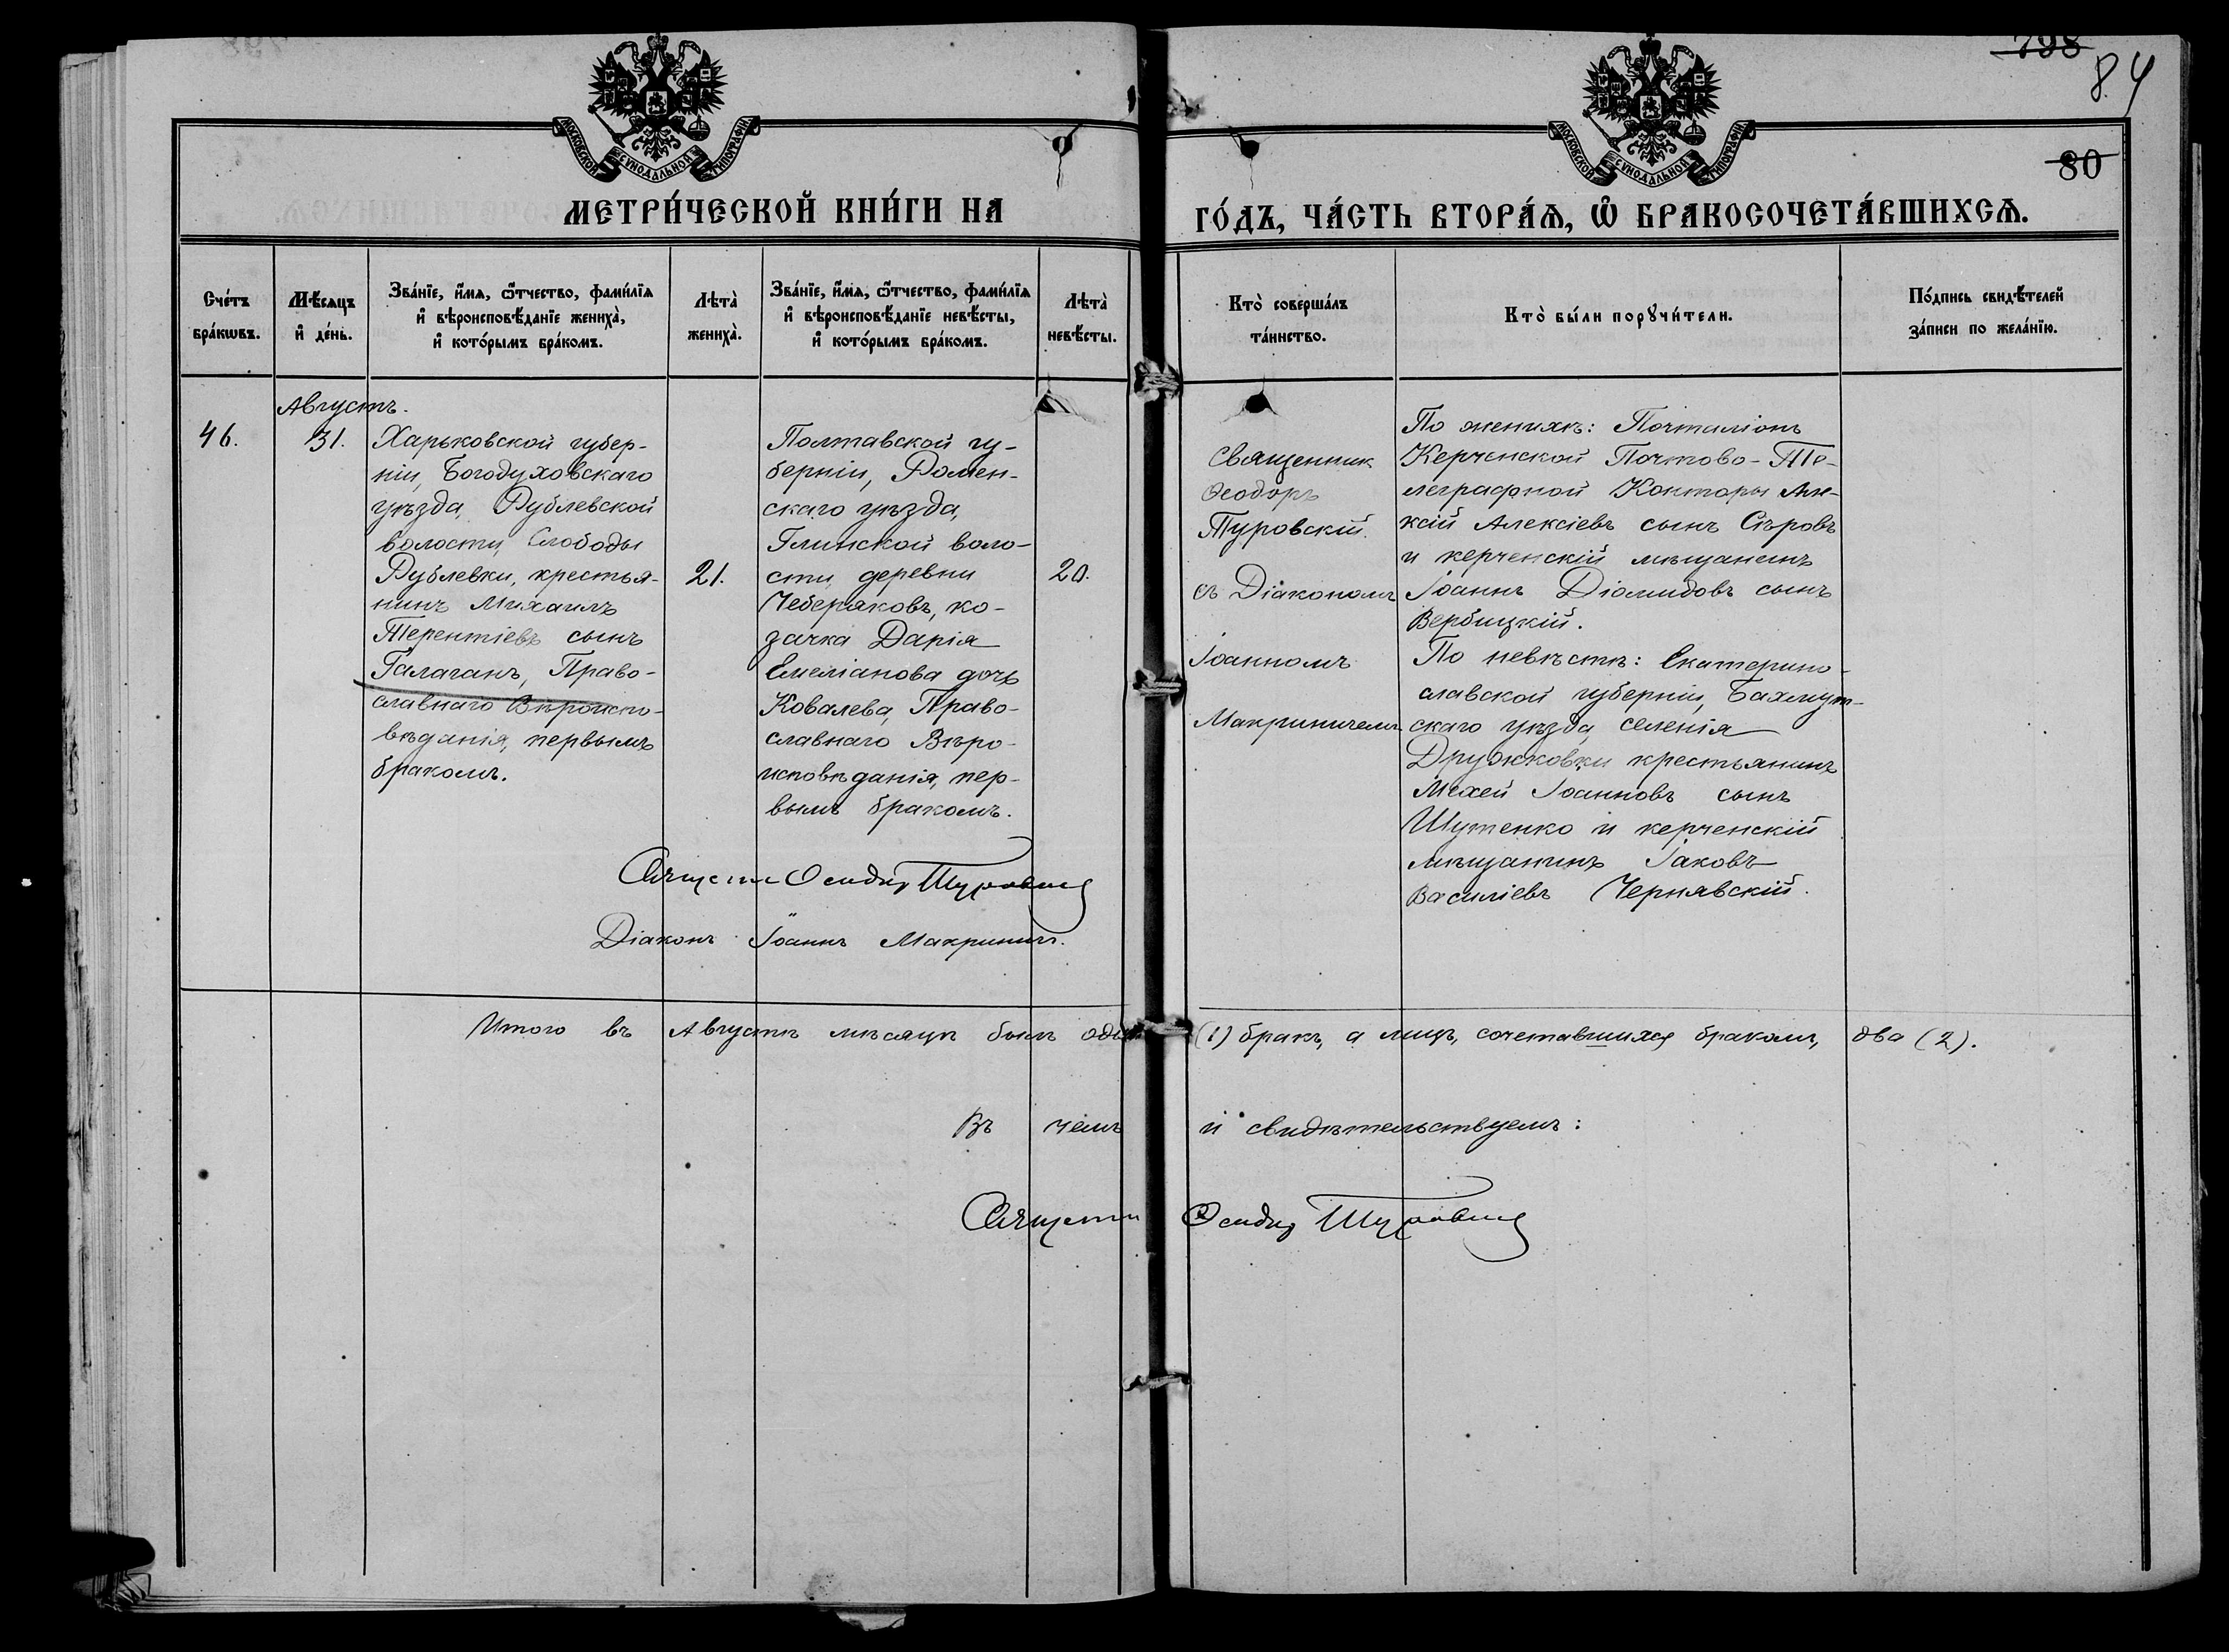 798
84
80
МОСКОВСКОЙ СѴНОДАЛЬНОЙ ТИПОГРАФІИ
МОСКОВСКОЙ СѴНОДАЛЬНОЙ ТИПОГРАФІИ
МЕТРИ́ЧЕСКОЙ КНИ́ГИ НА
ГО́ДЪ, ЧА́СТЬ ВТОРА́Ѧ, Ѡ҆ БРАКОСОЧЕТА́ВШИХСѦ.
Сче́тъ
бра́кѡвъ.
Мѣ́сяцъ
и҆ де́нь.
Зва́нїе, и҆́мя, ѻ҆́тчество, фами́лїя
и҆ вѣроисповѣ́данїе жениха̀,
и҆ кото́рымъ бра́комъ.
Лѣта̀
жениха̀.
Зва́нїе, и҆́мя, ѻ҆́тчество, фами́лїя
и҆ вѣроисповѣ́данїе невѣ́сты,
и҆ кото́рымъ бра́комъ.
Лѣта̀
невѣ́сты.
Кто̀ соверша́лъ
та́инство.
Кто̀ бы́ли порꙋчи́тели.
По́дпись свидѣ́телей
за́писи по жела́нїю.
46.
Августъ.
31.
Харьковской губер-
ніи, Богодуховскаго
уѣзда, Рублевской
волости, Слободы
Рублевки, крестья-
нинъ Михаилъ
Терентіевъ сынъ
Галаганъ, Право-
славнаго Вѣроиспо-
вѣданія, первымъ
бракомъ.
21.
Полтавской гу-
берніи, Ромен-
скаго уѣзда,
Глинской воло-
сти, деревни
Чеберяковъ, ко-
зачка Дарія
Емеліанова дочь
Ковалева, Право-
славнаго Вѣро-
исповѣданія, пер-
вымъ бракомъ.
20.
Священник
Ѳеодоръ
Туровскій.
съ Діакономъ
Іоанномъ
Макриничемъ
По женихѣ: Почталіонъ
Керченской Почтово-Те-
леграфной Конторы Але-
ксій Алексіевъ сынъ Сѣровъ
и керченскій мѣщанинъ
Іоаннъ Діомидовъ сынъ
Вербицкій.
По невѣстѣ: Екатерино-
славской губерніи, Бахмут-
скаго уѣзда, селенія
Дружковки крестьянинъ
Михей Іоанновъ сынъ
Шутенко и керченскій
мѣщанинъ Іаковъ
Василіевъ Чернявскій.
Священн Ѳеодоръ Туровскій
Діаконъ Іоаннъ Макриничъ.
Итого въ Августѣ мѣсяцѣ былъ оди (1) бракъ, а лицъ, сочетавшихся бракомъ, два (2).
Въ чемъ и свидѣтельствуемъ:
Священн Ѳеодоръ Туровскій